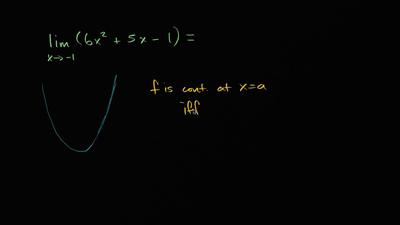 lim (6x² + 5x - 1) =
x→-1
f is cont. at x=a
iff